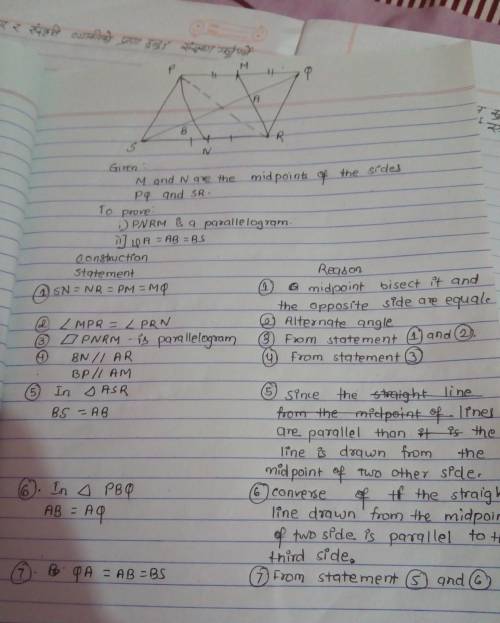 P M Q
A
B
S N R
Given:
M and N are the midpoints of the sides
PQ and SR.
To prove:
i) PNRM is a parallelogram.
ii] QA = AB = BS
Construction
Statement Reason
① SN = NR = PM = MQ ① midpoint bisect it and
the opposite side are equal.
② ∠MPR = ∠PRN ② Alternate angle
③ ▱ PNRM - is parallelogram ③ From statement ① and ②.
④ BN // AR ④ From statement ③
BP // AM
⑤ In △ ASR ⑤ since the straight line
BS = AB from the midpoint of lines
are parallel than it is the
line is drawn from the
midpoint of two other side.
⑥. In △ PBQ ⑥ converse of if the straigh
AB = AQ line drawn from the midpoin
of two side is parallel to th
third side.
⑦. QA = AB = BS ⑦ From statement ⑤ and ⑥